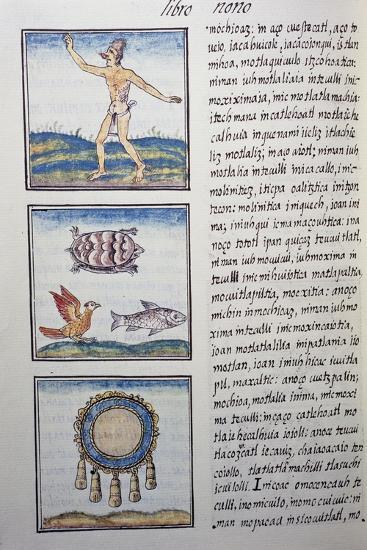 libro nono
mochioaz: in aço cuextecatl, aço to
ueio, iacahuicole, iacacoionqui, ixtlan
mihoa, motlaquicuilo itzcohoatica:
niman iuh motlaliaia inteculli inic
moxiximaia, inic motlatlamachia:
itech mana in catlehoatl motlaiehe
calhuia inquenami iieliz itlachie
liz motlaliz; in aço aiotl; niman iuh
motlalia inteculli inic a
molonitica, iticpa
tecon: molinitica iniquech, ioan ini
ma; iniuhqui ic mamacouhtica: in a
noço tototl ipan quiçaz teucuitlatl,
niman iuh mocuicui, iuh moxima in
teculli inic mihuiiotica matlapaltia,
mocuitlapiltia, mocxitia: anoço
michin in mochioaz, niman iuh mo
xima intecculli inic moxincaiotia,
ioan motlatlalilia inipatlania ito
motlan, ioan iniuh hicac icuitla
pil, maxaltic: anoço cuetzpalin;
mochioa, motlalia inima, inic moxi
ma teculli: in çaço catlehoatl mo
tlaiehecalhuia ioioli: anoço teucui
tlacozcatl iecauiz, chaiaoacaio te
coiollo, tlatlatlamachilli tlaxochi
icuilolli. Inicoac omocencauh te
culli, inomicuilo, inomocuicuic: ni
man mopaoaci in xicocuitlatl, mo,